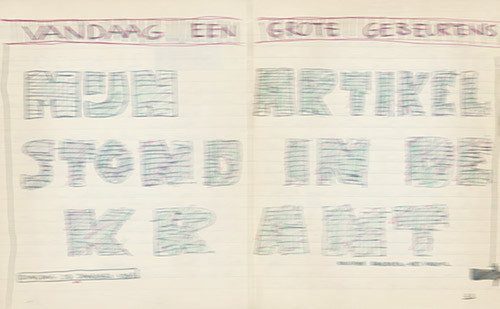 VANDAAG EEN GROTE GEBEURTENIS
MIJN ARTIKEL
STOND IN DE
KRANT